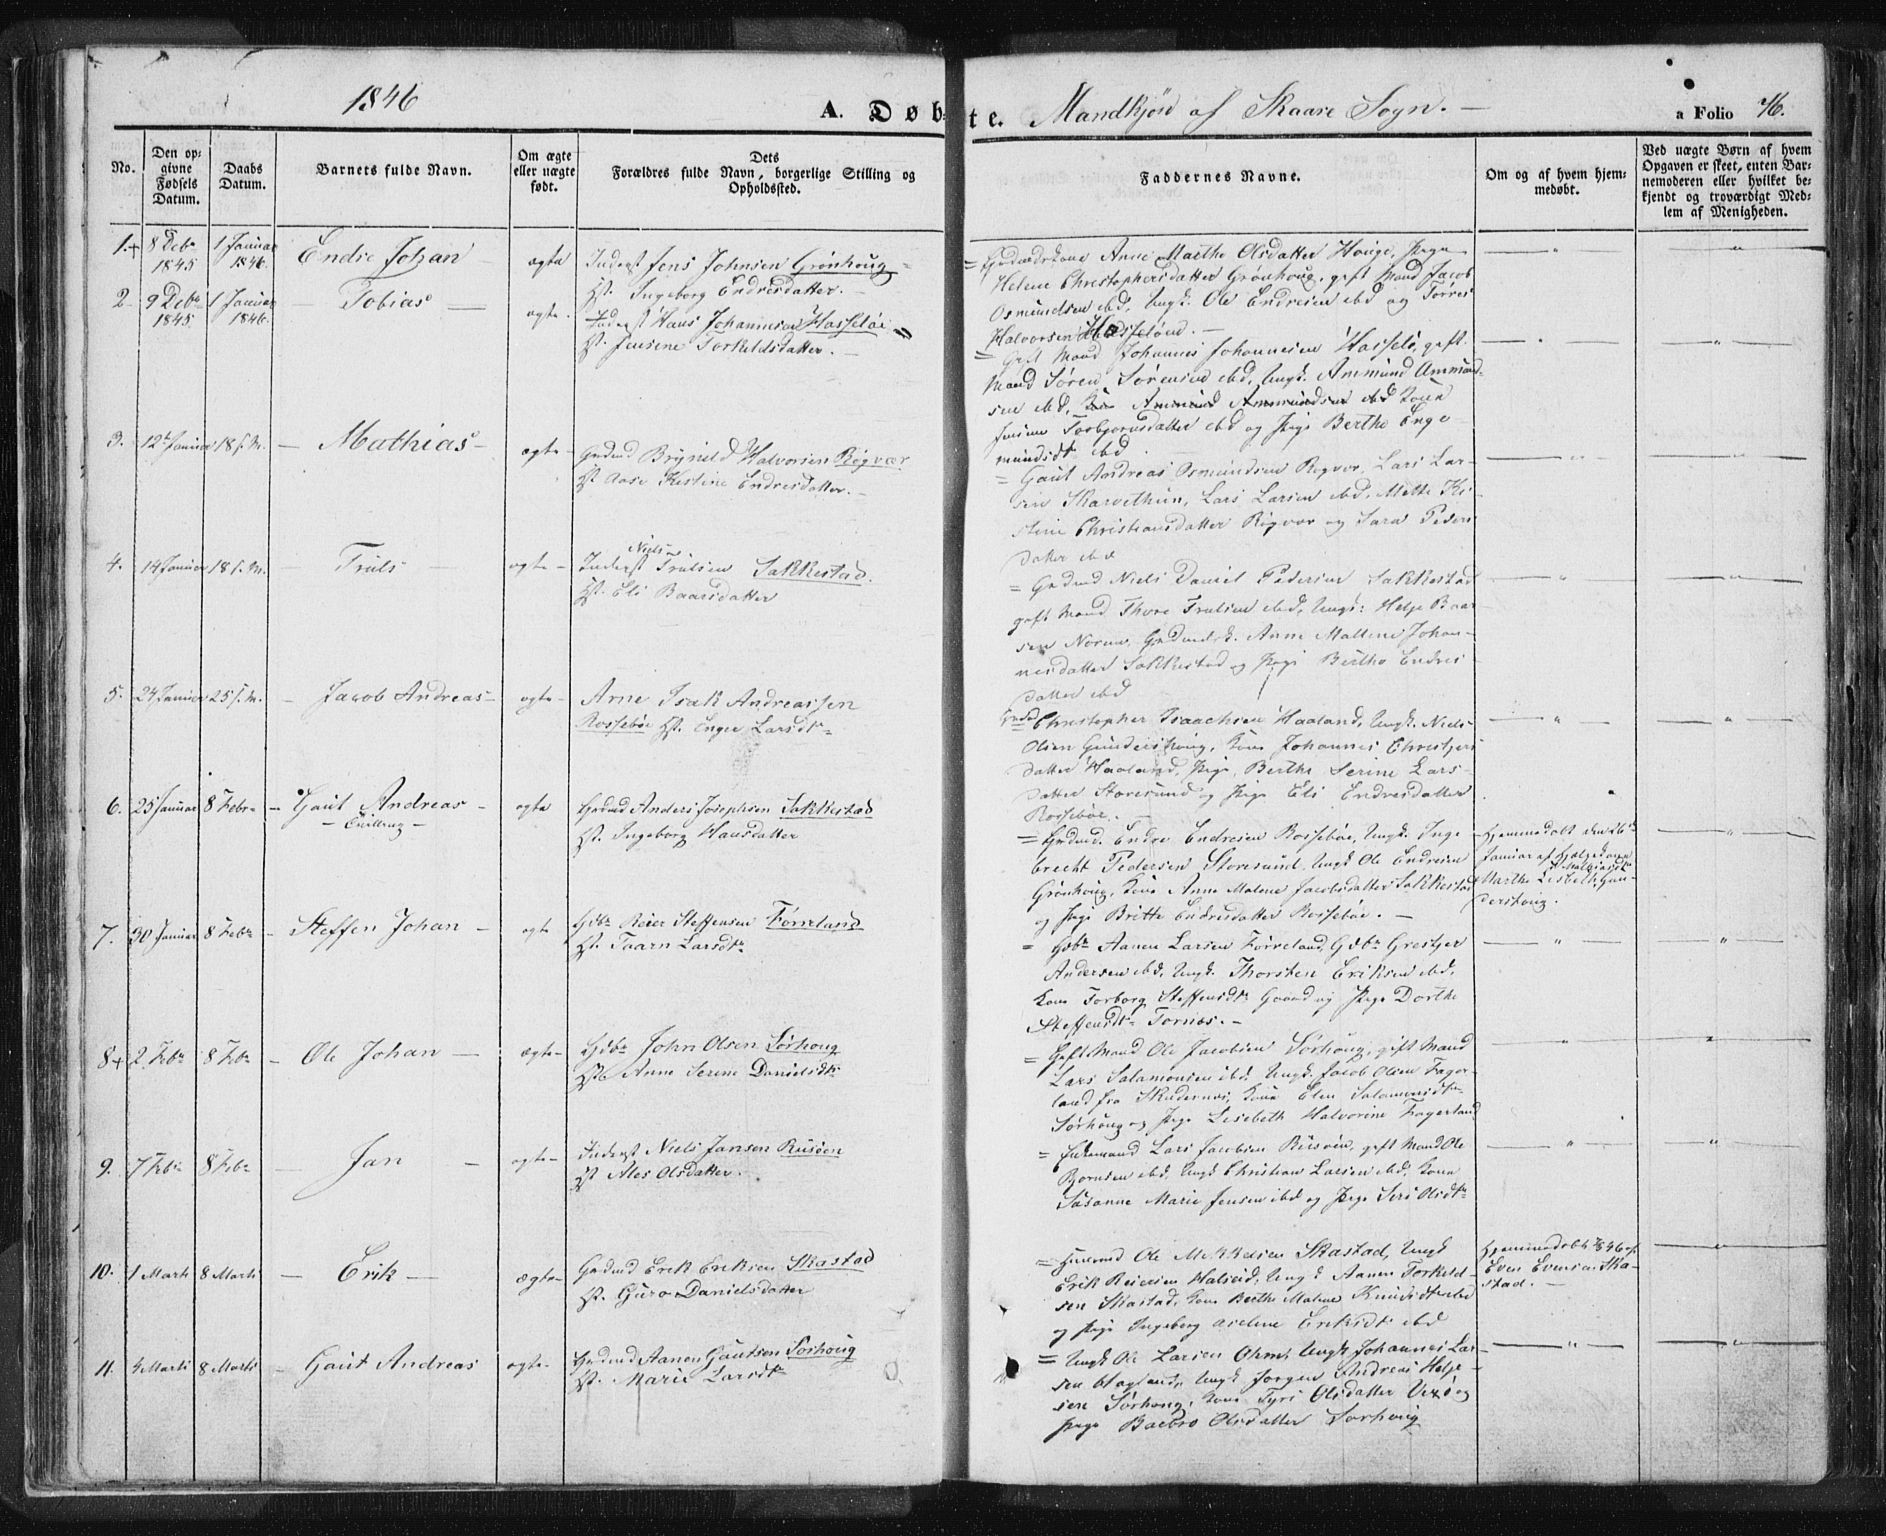 1846
A. Døbte. Mandkjön af Skaare Sogn. —
a Folio 76.
No.
Den opgivne Fødsels Datum.
Daabs Datum.
Barnets fulde Navn.
Om ægte eller uægte født.
Dets Forældres fulde Navn, borgerlige Stilling og Opholdssted.
Faddernes Navne.
Om og af hvem hjemmedøbt.
Ved uægte Børn af hvem Opgaven er skeet, enten Barnemoderen eller hvilket bekjendt og troværdigt Medlem af Menigheden.
1.+ 8 Debr 1845 1 Januar 1846. Endre Johan — ægte
Inderst Jens Johnsen Grönhoug
Hst. Ingeborg Endresdatter. —
= Anne Marthe Olsdatter Houge, Pige
Helene Christophersdatter Grönhoug, gift Mand Jacob
Osmundsen ibd, Ungk. Ole Endresen ibd og Törres
Halvorsen Hasselöen. —
2 9 Debr 1845. 1 Januar 1846. Tobias — ægte.
Inderst Hans Johannesen Hasselöe =
Hst. Jensine Torkeldsdatter. —
= Gift Mand Johannes Johannesen Hasselö, gift
Mand Sören Sörensen ibd, Ungk. Ammund Ammund-
sen ibd, Kone Ammund Ammundsen ibd Kone
Torbjornsdatter ibd og Pige Berthe Enge-
mundsdt. ibd
3. 12t Januar 18 s. M. — Mathias — ægte —
Grdmd Bryneld Halvorsen Rögvær
Hst. Aase Kestine Endresdatter. —
= Gaut Andreas Osmundsen Rögvær, Lars Lar-
sen Skarvethun, Lars Larsen ibd, Mette Ki-
stine Christiansdatter Rögvær og Sara Peders
datter ibd
4. 14 Januar 18 s. M. — Truls — ægte —
Inderst Niels Trulsen Sakkestad.
Hst. Eli Baarsdatter
= Grdmd Niels Daniel Pedersen Sakkestad
gift Mand Thore Trulsen ibd, Ungk: Helje Baar-
sen Norem, Grdmdsk. Anne Mallene Johan-
nesdatter Sakkestad og Pige Bertha Endres
datter ibd
5. 24 Januar 25 s. M. — Jacob Andreas — ægte —
Arne Isak Andreassen
Rossebøe Hst. Enger Larsdtr
Grdmd Christopher Isaachsen Haaland, Ungk. Niels
Olsen Gundershoug, Kone Johannes Christjers
datter Haaland, Pige, Berthe Serine Lars-
datter Storesund og Pige Eli Endresdatter
Rossebøe. —
6. 25 Januar 8 Febr — Gaut Andreas — ægte
— Tvilling —
Grdmd Anders Josephsen Sakkestad
Hst. Ingeborg Hansdatter
= Grdmd. Endre Endresen Rossebøe, Ungk. Inge
brecht Pedersen Storesund, Ungk Ole Endresen
Grönhoug, Kone Anne Malene Jacobsdatter Sakkestad
og Pige Britte Endresdatter Rossebøe. —
Hjemmedöbt den 26de
Januar af Hjelpekonen
Marthe Lisbeth Gun-
dershoug.
7. 30 Januar 8 Febr — Steffen Johan — ægte
Gdbr Reier Steffensen Förreland
Hst. Taarn Larsdtr
= Gdbr Aanen Larsen Förreland, Gdbr Grestjer
Andersen ibd, Ungk. Thorsten Eriksen ibd,
Kone Torborg Steffensdtr Gaard og Pige Dorthe
Steffensdtr Tornes. —
8+ 2. Febr 8 Febr — Ole Johan — ægte —
Gdbr John Olsen Sörhoug
Hst. Anne Serine Danielsdtr
= Gift Mand Ole Jacobsen Sörhoug, gift Mand
Lars Salamonsen ibd. Ungk. Jacob Olsen Fager-
land fra Skudernes, Kone Elen Salamonsdtr
Sörhoug og Pige Lisebeth Halvorine Fagerland
9. 7 Febr 8 Febr — Jan — ægte —
Inderst Niels Jansen Risöen
Hst. Ales Olsdatter.
= Enkemand Lars Jacobsen Risöen, gift Mand Ole
Bjornsen ibd, Ungk Christian Larsen ibd, Kone
Susanne Marie Jensen ibd og Pige Seri Olsdtr
10. 1 Marts 8 Marts — Erik — ægte —
Grdmd Erek Ereksen Skastad
Hst. Guro Danielsdatter
= Ole Mekkelsen Skastad, Ungk
Erik Reiersen Halseid, Ungk Aanen Torkeld-
sen Skastad, Kone Berthe Malene Knudsdtr ibd
og Pige Ingeborg Aselene Eriksdt ibd
Hjemmedöbt af
Even Evensen Ska-
stad. —
11. 4 Marts 8 Marts — Gaut Andreas ægte —
Grdmd Aanen Gautsen Sörhoug
Hst. Marie Larsdtr
= Ungk Ole Larsen Ungk Johannes Lar-
sen Ungk Jorgen Andreas Helje-
sen Sörhoug, Kone Tyri Olsdatter og
Pige Baebro Olsdatter Sörhoug